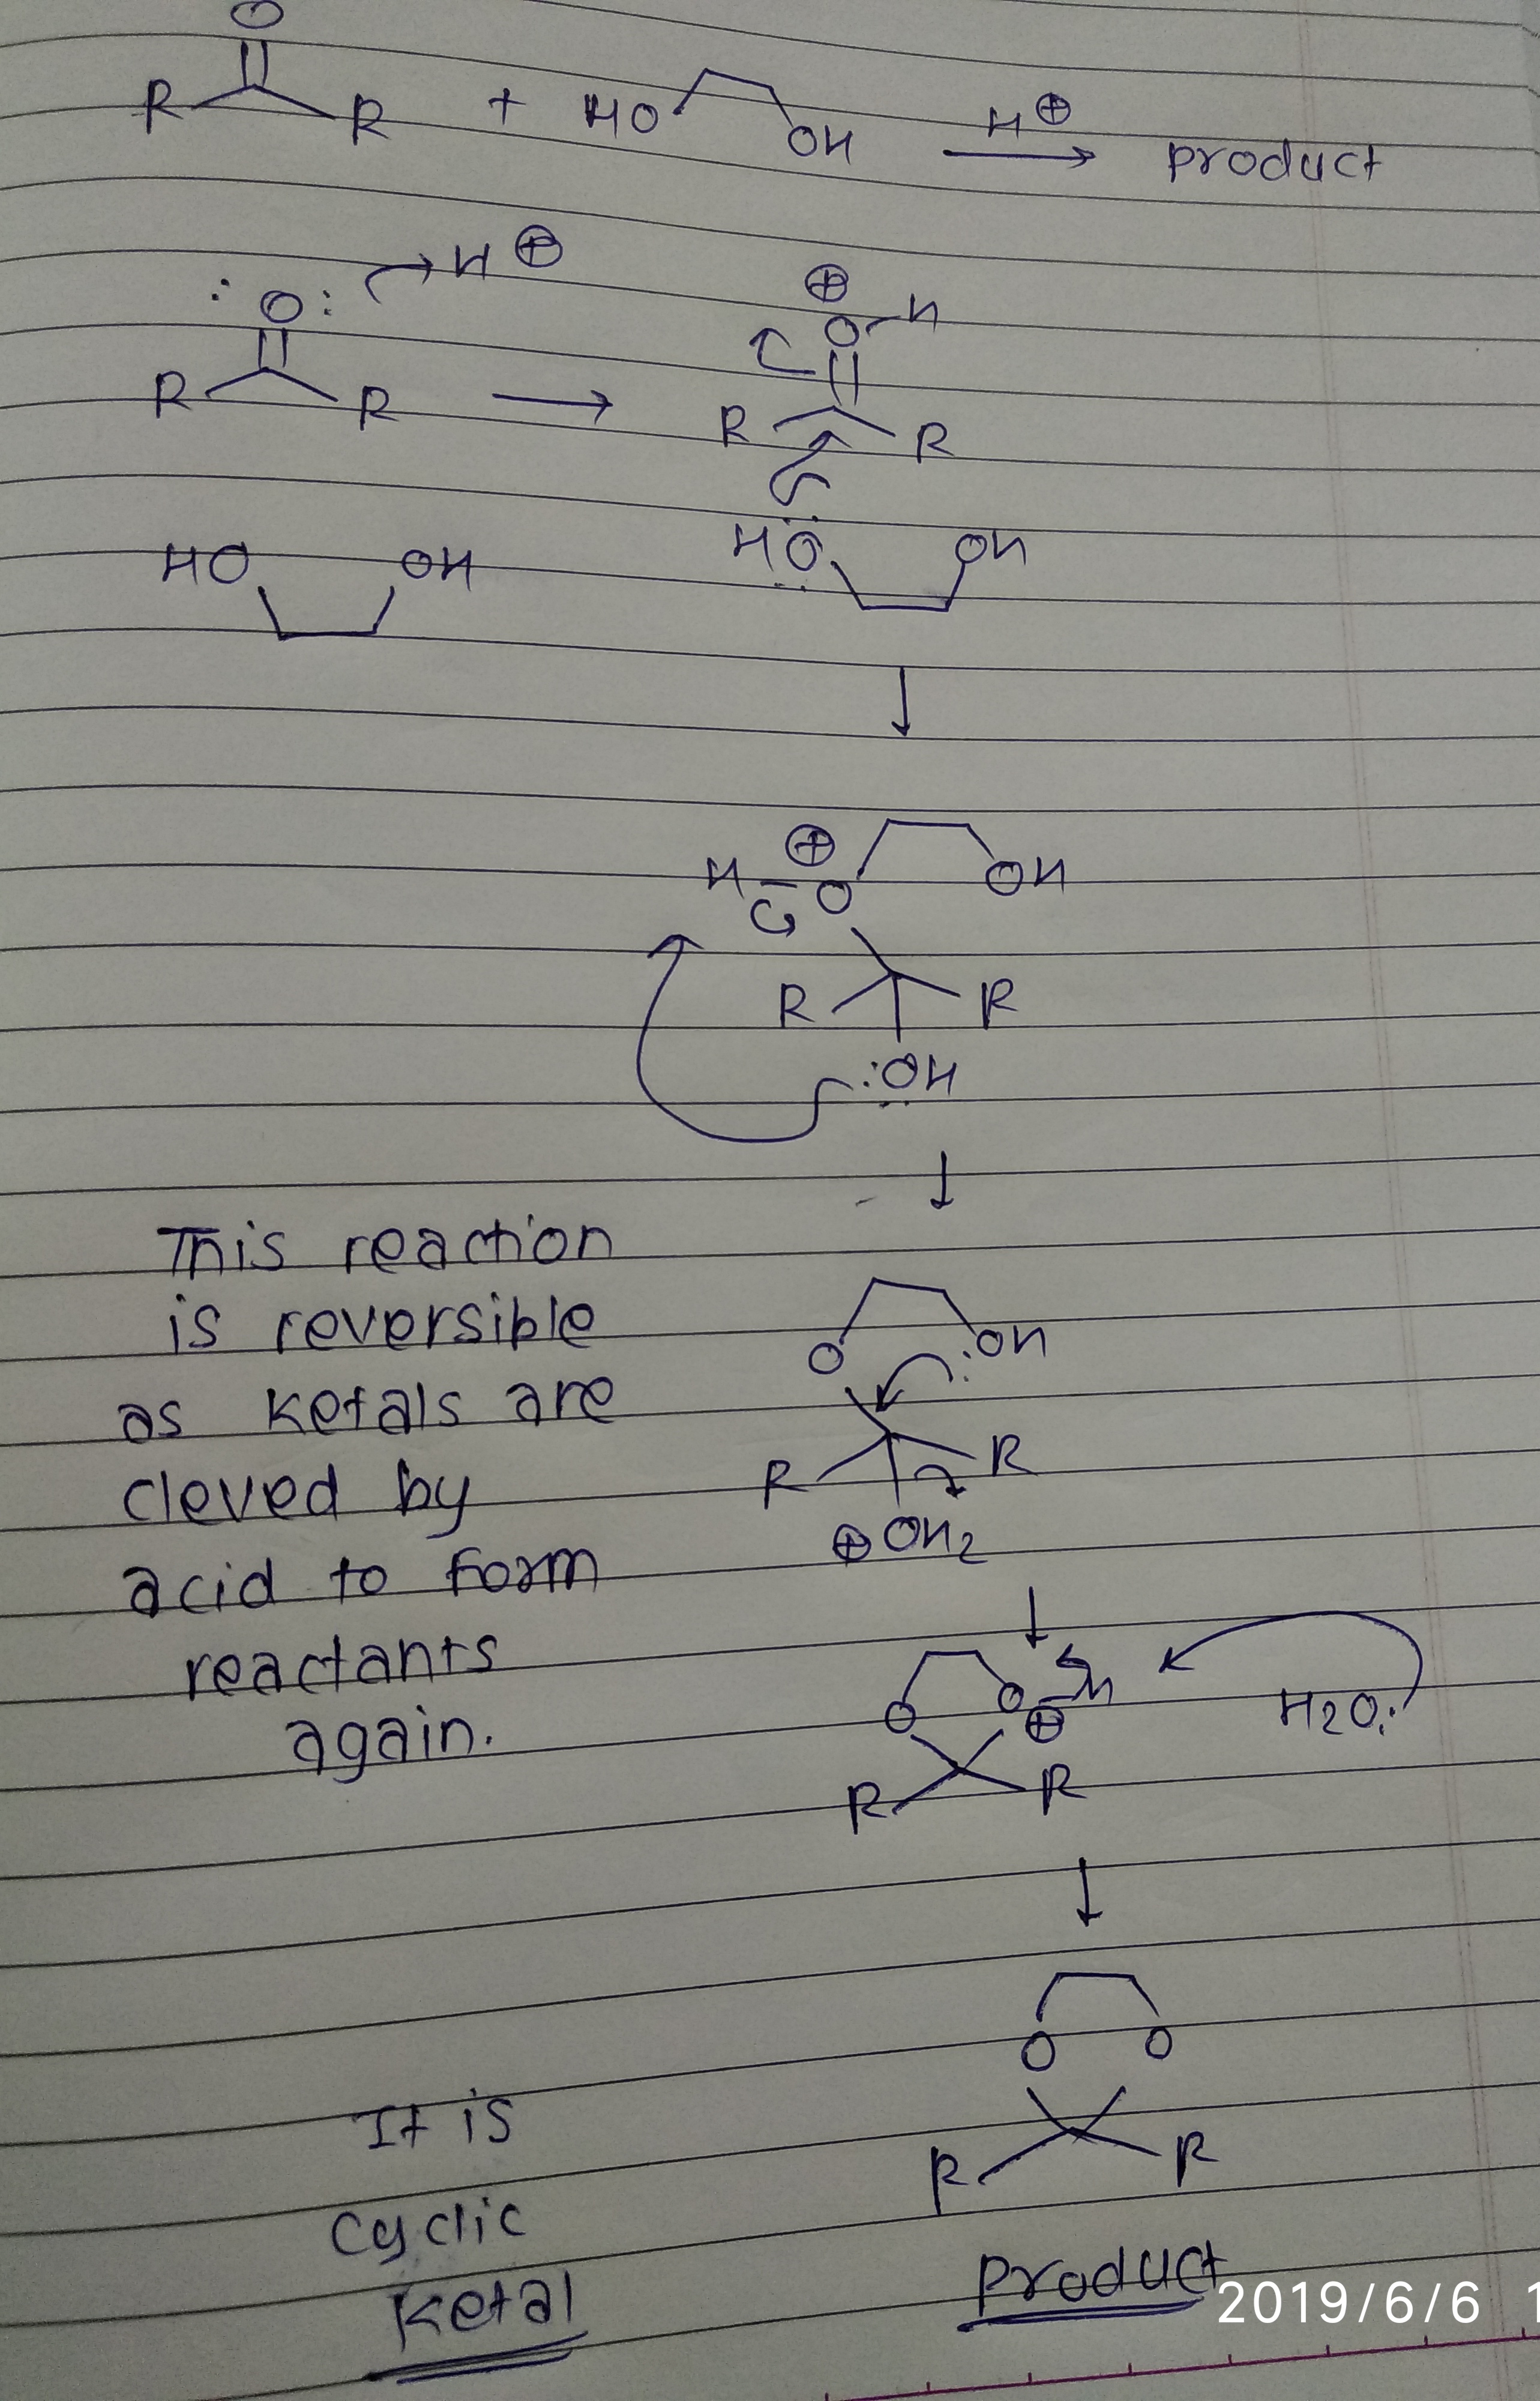 O
R R + HO OH H⊕ → product
: O: → H ⊕
R R → R R
⊕
O H
HO OH HO OH
⊕
H - O OH
R R
:OH
This reaction
is reversible
as Ketals are
cleved by
acid to form
reactants
again.
O :OH
R R
⊕ OH2
O O H
⊕ H2O:
R R
O O
R R
It is
cyclic
Ketal
Product
2019/6/6 1